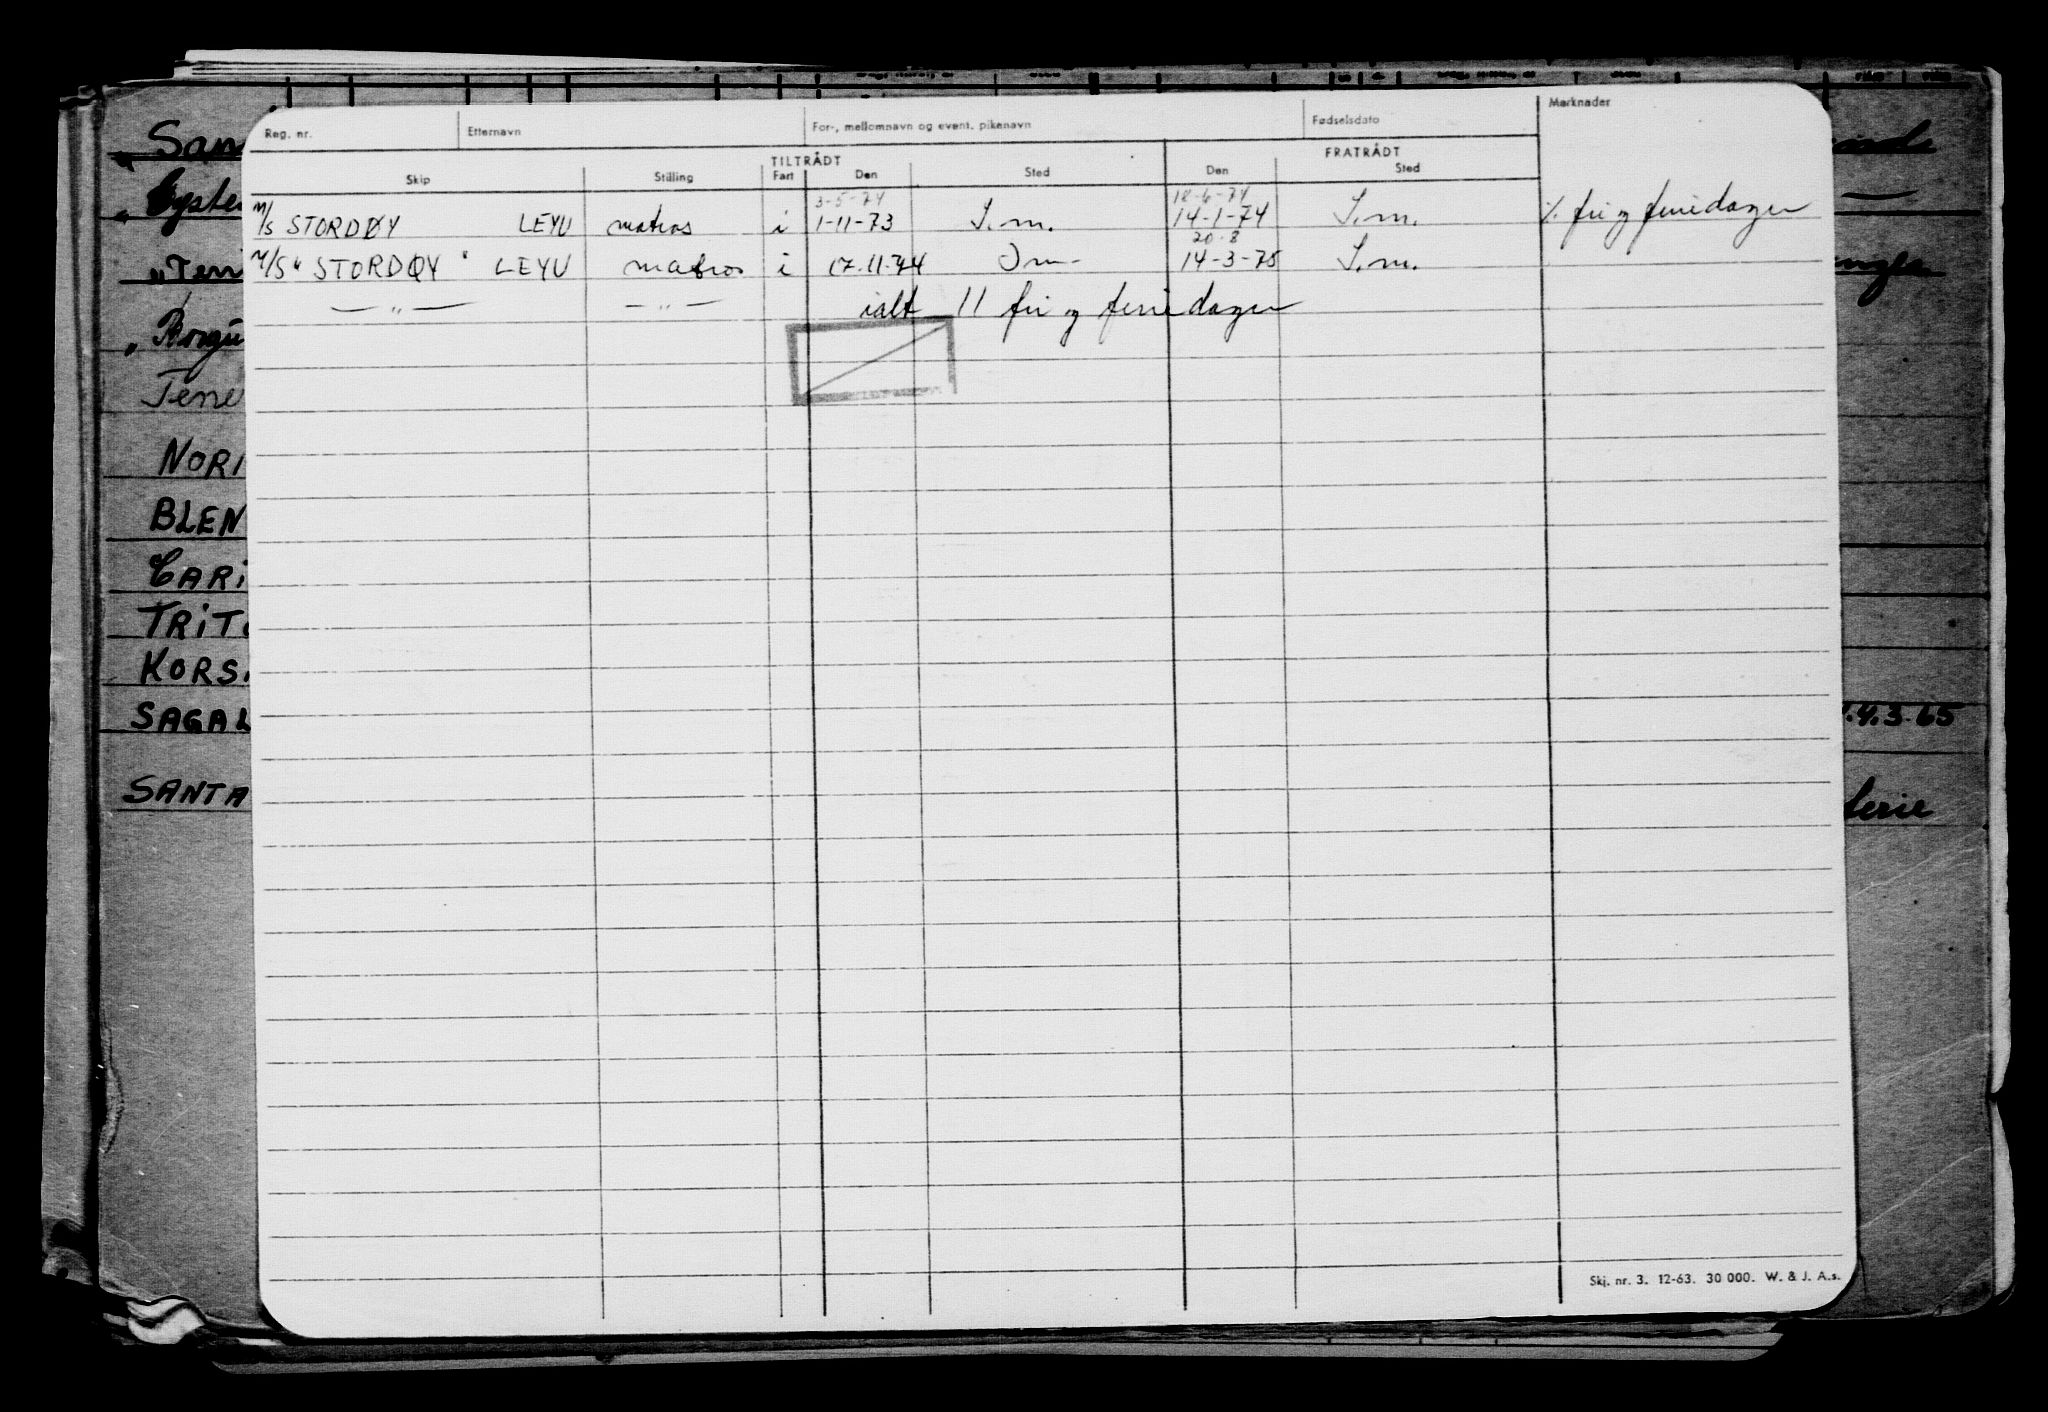 Reg. nr. Etternavn For-, mellomnavn og event. pikenavn Fødselsdato Merknader
TILTRÅDT FRATRÅDT
Skip Stilling Fart Den Sted Den Sted
3-5-74 18-6-74
M/S STORDØY LEYU matros i 1-11-73 S.m. 14-1-74 S.m. %. fri og feriedager
20-8
M/S "STORDØY" LEYU matros i 17.11.74 14-3-75 S.m.
— " — — " — ialt 11 fri og feriedager
Skj. nr. 3. 12-63. 30 000. W. & J. A.s.
San
Tene
NORI
BLEN
CARI
TRIT
KORS
SAGAL 4.3-65
SANTA ferie